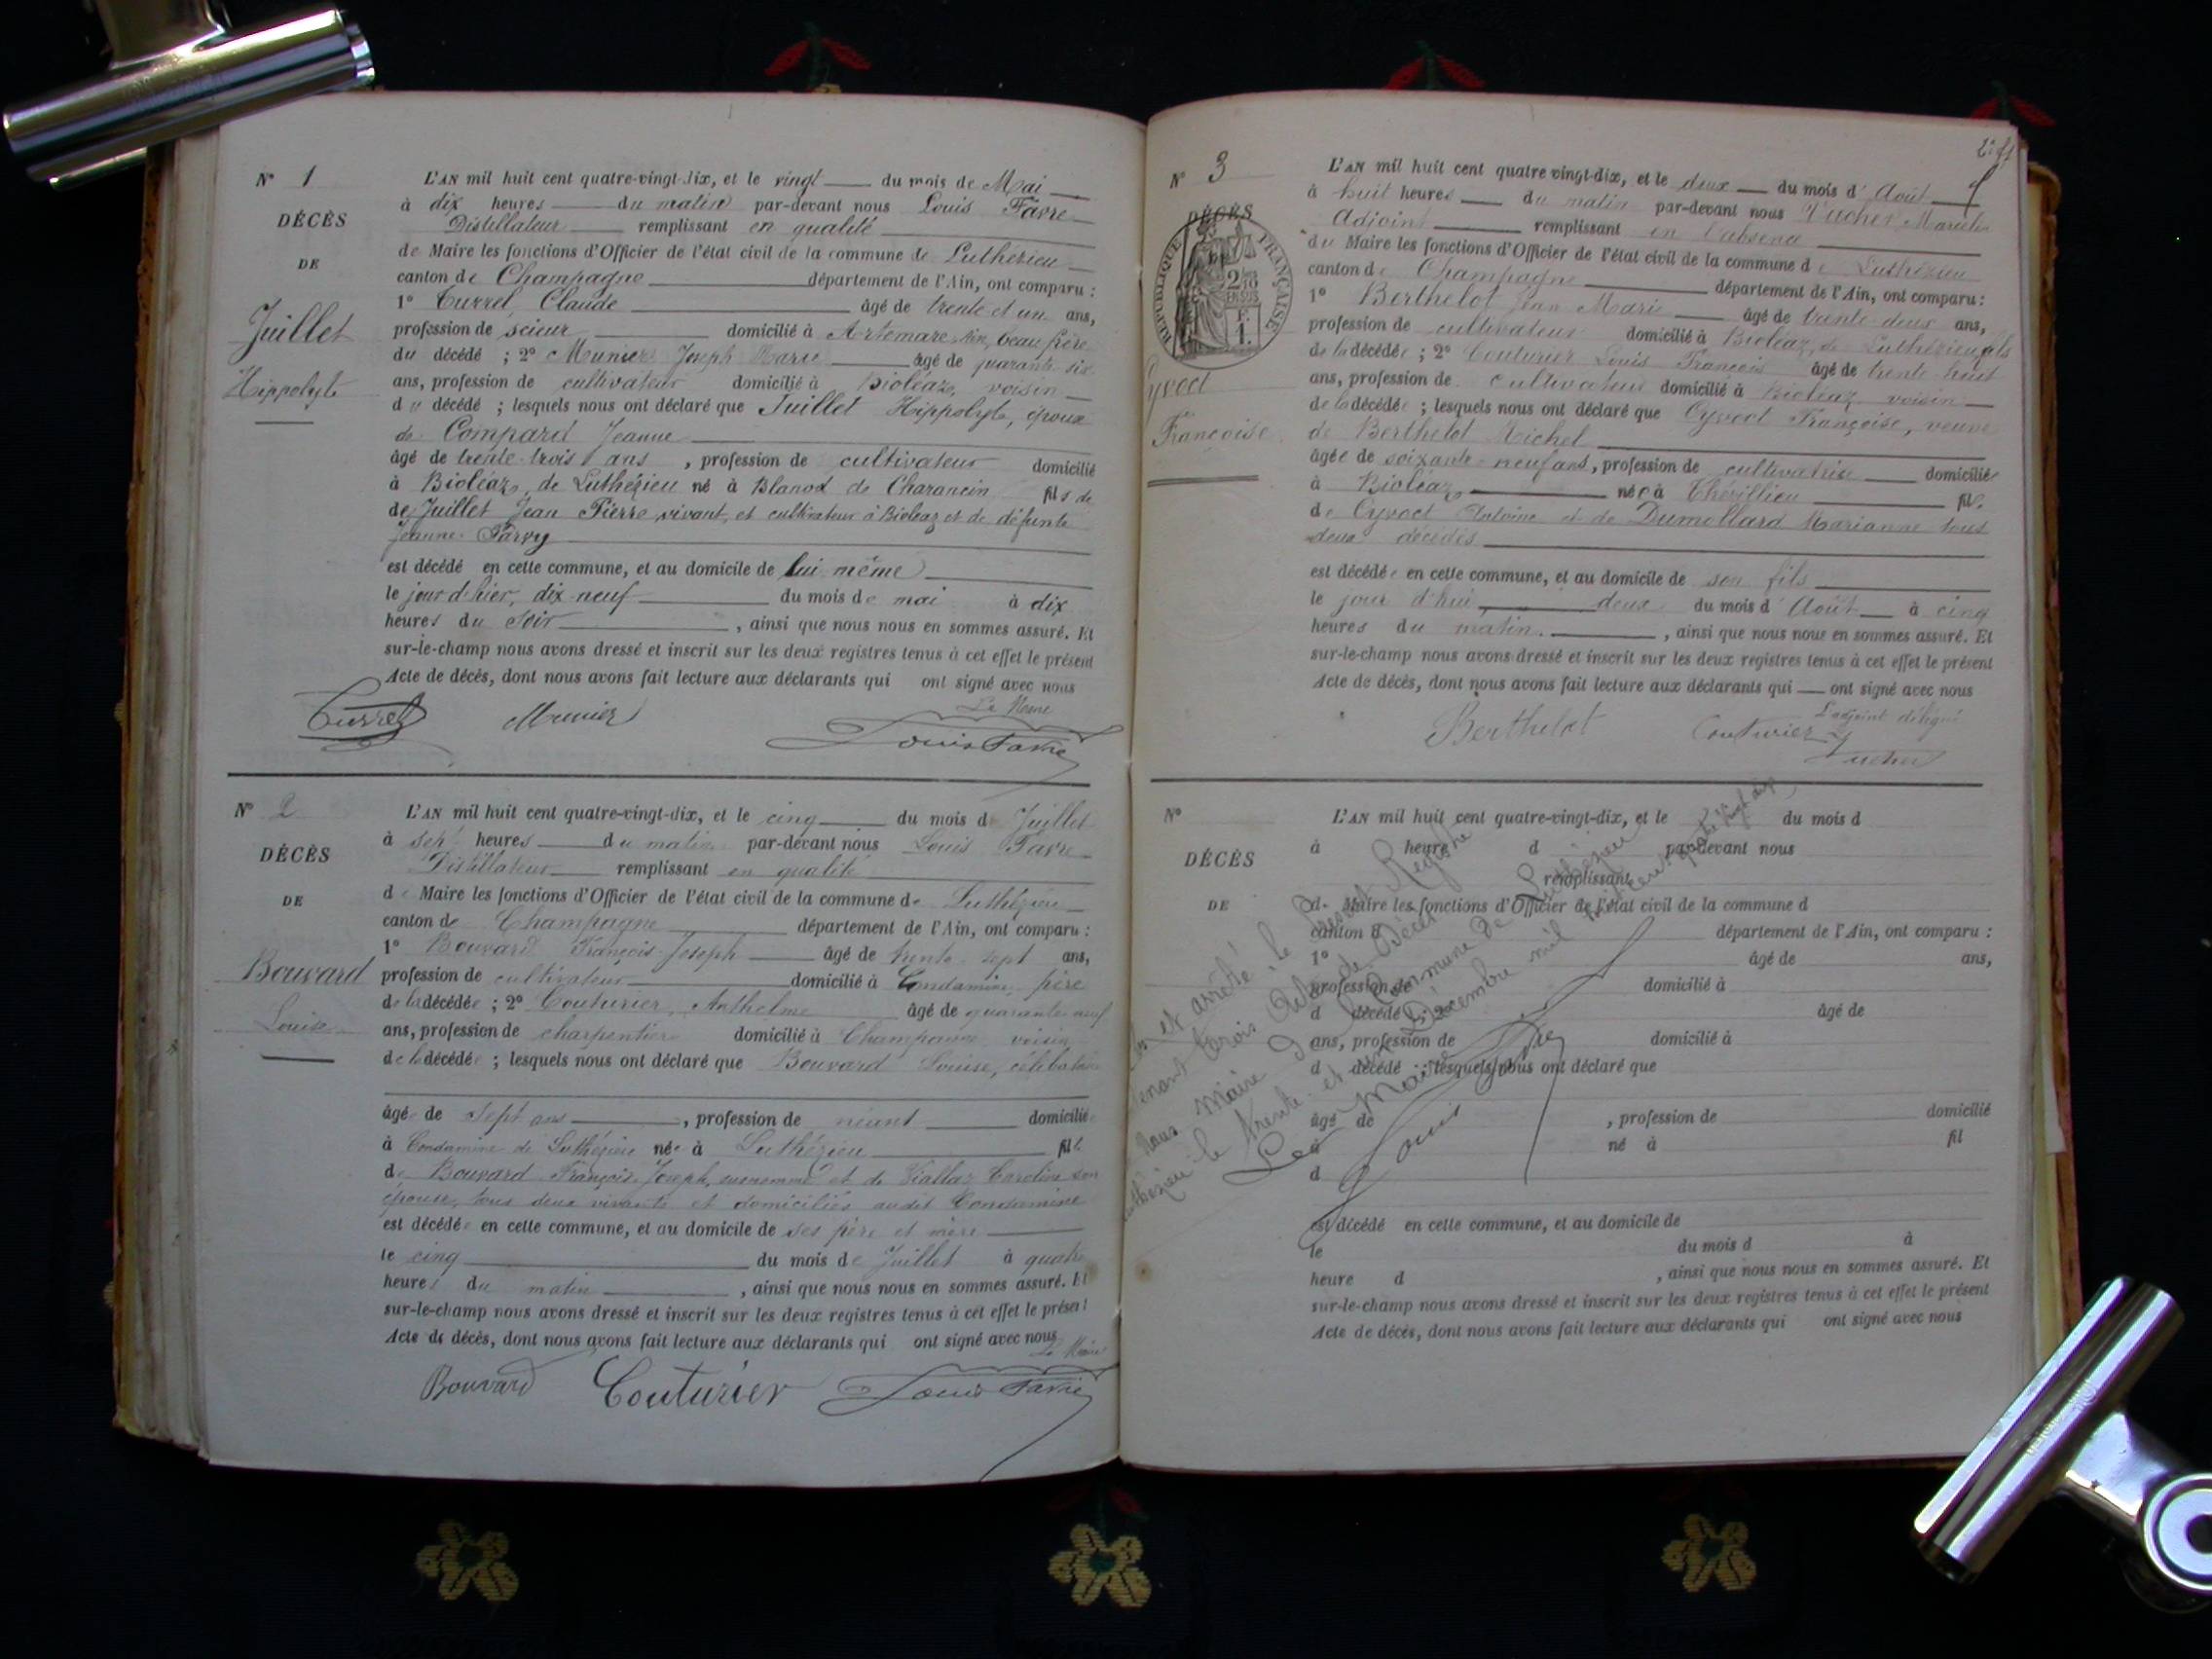 N° 1
DÉCÈS
DE
Juillet
Hippolyte
L'AN mil huit cent quatre-vingt-dix, et le vingt du mois de Mai
à dix heures du matin par-devant nous Louis Favre
Distillateur remplissant en qualité
de Maire les fonctions d'Officier de l'état civil de la commune de Luthézieu
canton de Champagne département de l'Ain, ont comparu :
1° Turrel, Claude âgé de trente et un ans,
profession de scieur domicilié à Artemare, Ain, beau frère
du décédé ; 2° Munier Joseph Marie âgé de quarante six
ans, profession de cultivateur domicilié à Bioléaz, voisin
du décédé ; lesquels nous ont déclaré que Juillet Hippolyte, époux
de Compard Jeanne
âgé de trente-trois ans , profession de cultivateur domicilié
à Bioléaz, de Luthézieu né à Blanod de Charancin fils de
de Juillet Jean Pierre vivant, et cultivateur à Bioléaz et de défunte
Jeanne Parry
est décédé en cette commune, et au domicile de lui même
le jour d'hier, dix neuf du mois de mai à dix
heures du soir , ainsi que nous nous en sommes assuré. Et
sur-le-champ nous avons dressé et inscrit sur les deux registres tenus à cet effet le présent
Acte de décès, dont nous avons fait lecture aux déclarants qui ont signé avec nous
Le Maire
Turrel Munier Louis Favre
N° 2
DÉCÈS
DE
Bouvard
Louise
L'AN mil huit cent quatre-vingt-dix, et le cinq du mois d Juillet
à sept heures du matin par-devant nous Louis Favre
Distillateur remplissant en qualité
de Maire les fonctions d'Officier de l'état civil de la commune de Luthézieu
canton de Champagne département de l'Ain, ont comparu :
1° Bouvard François-Joseph âgé de trente-sept ans,
profession de cultivateur domicilié à Condamine, père
de la décédée ; 2° Couturier, Anthelme âgé de quarante neuf
ans, profession de charpentier domicilié à Champagne voisin
de la décédée ; lesquels nous ont déclaré que Bouvard Louise, célibataire
âgé de sept ans , profession de néant domicilié
à Condamine de Luthézieu née à Luthézieu fille
de Bouvard François Joseph, susnommé et de Viallaz Caroline son
épouse, tous deux vivants et domiciliés audit Condamine
est décédée en cette commune, et au domicile de ses père et mère
le cinq du mois de Juillet à quatre
heures du matin , ainsi que nous nous en sommes assuré. Et
sur-le-champ nous avons dressé et inscrit sur les deux registres tenus à cet effet le présent
Acte de décès, dont nous avons fait lecture aux déclarants qui ont signé avec nous
Le Maire
Bouvard Couturier Louis Favre
N° 3
DÉCÈS
RÉPUBLIQUE FRANÇAISE
Cyvoct
Françoise
L'AN mil huit cent quatre vingt-dix, et le deux du mois d' Août
à huit heures du matin par-devant nous
Adjoint remplissant en l'absence
du Maire les fonctions d'Officier de l'état civil de la commune de Luthézieu
canton de Champagne département de l'Ain, ont comparu :
1° Berthelot Jean Marie âgé de trente-deux ans,
profession de cultivateur domicilié à Bioléaz, de Luthézieu, fils
de la décédée ; 2° Couturier Louis François âgé de trente huit
ans, profession de cultivateur domicilié à Bioléaz voisin
de la décédée ; lesquels nous ont déclaré que Cyvoct Françoise, veuve
de Berthelot Michel
âgée de soixante-neuf ans, profession de cultivatrice domiciliée
à Bioléaz née à Thézillieu fille
de Cyvoct Antoine et de Dumollard Marianne tous
deux décédés
est décédée en cette commune, et au domicile de son fils
le jour d'hui deux du mois d' Août à cinq
heures du matin. , ainsi que nous nous en sommes assuré. Et
sur-le-champ nous avons dressé et inscrit sur les deux registres tenus à cet effet le présent
Acte de décès, dont nous avons fait lecture aux déclarants qui ont signé avec nous
L'adjoint délégué
Berthelot Couturier
N°
DÉCÈS
DE
L'AN mil huit cent quatre-vingt-dix, et le du mois d
à heure d par-devant nous
remplissant
d Maire les fonctions d'Officier de l'état civil de la commune d
canton d département de l'Ain, ont comparu :
1° âgé de ans,
profession de domicilié à
d décédé ; 2° âgé de
ans, profession de domicilié à
d décédé ; lesquels nous ont déclaré que
âgé de , profession de domicilié
à né à fil
d
est décédé en cette commune, et au domicile de
le du mois d à
heure d , ainsi que nous nous en sommes assuré. Et
sur-le-champ nous avons dressé et inscrit sur les deux registres tenus à cet effet le présent
Acte de décès, dont nous avons fait lecture aux déclarants qui ont signé avec nous
et arrêté le présent Registre
trois Actes de Décès
nous Maire de la Commune de Luthézieu
le trente et un Décembre mil huit cent quatre vingt dix
Le Maire
Louis Favre